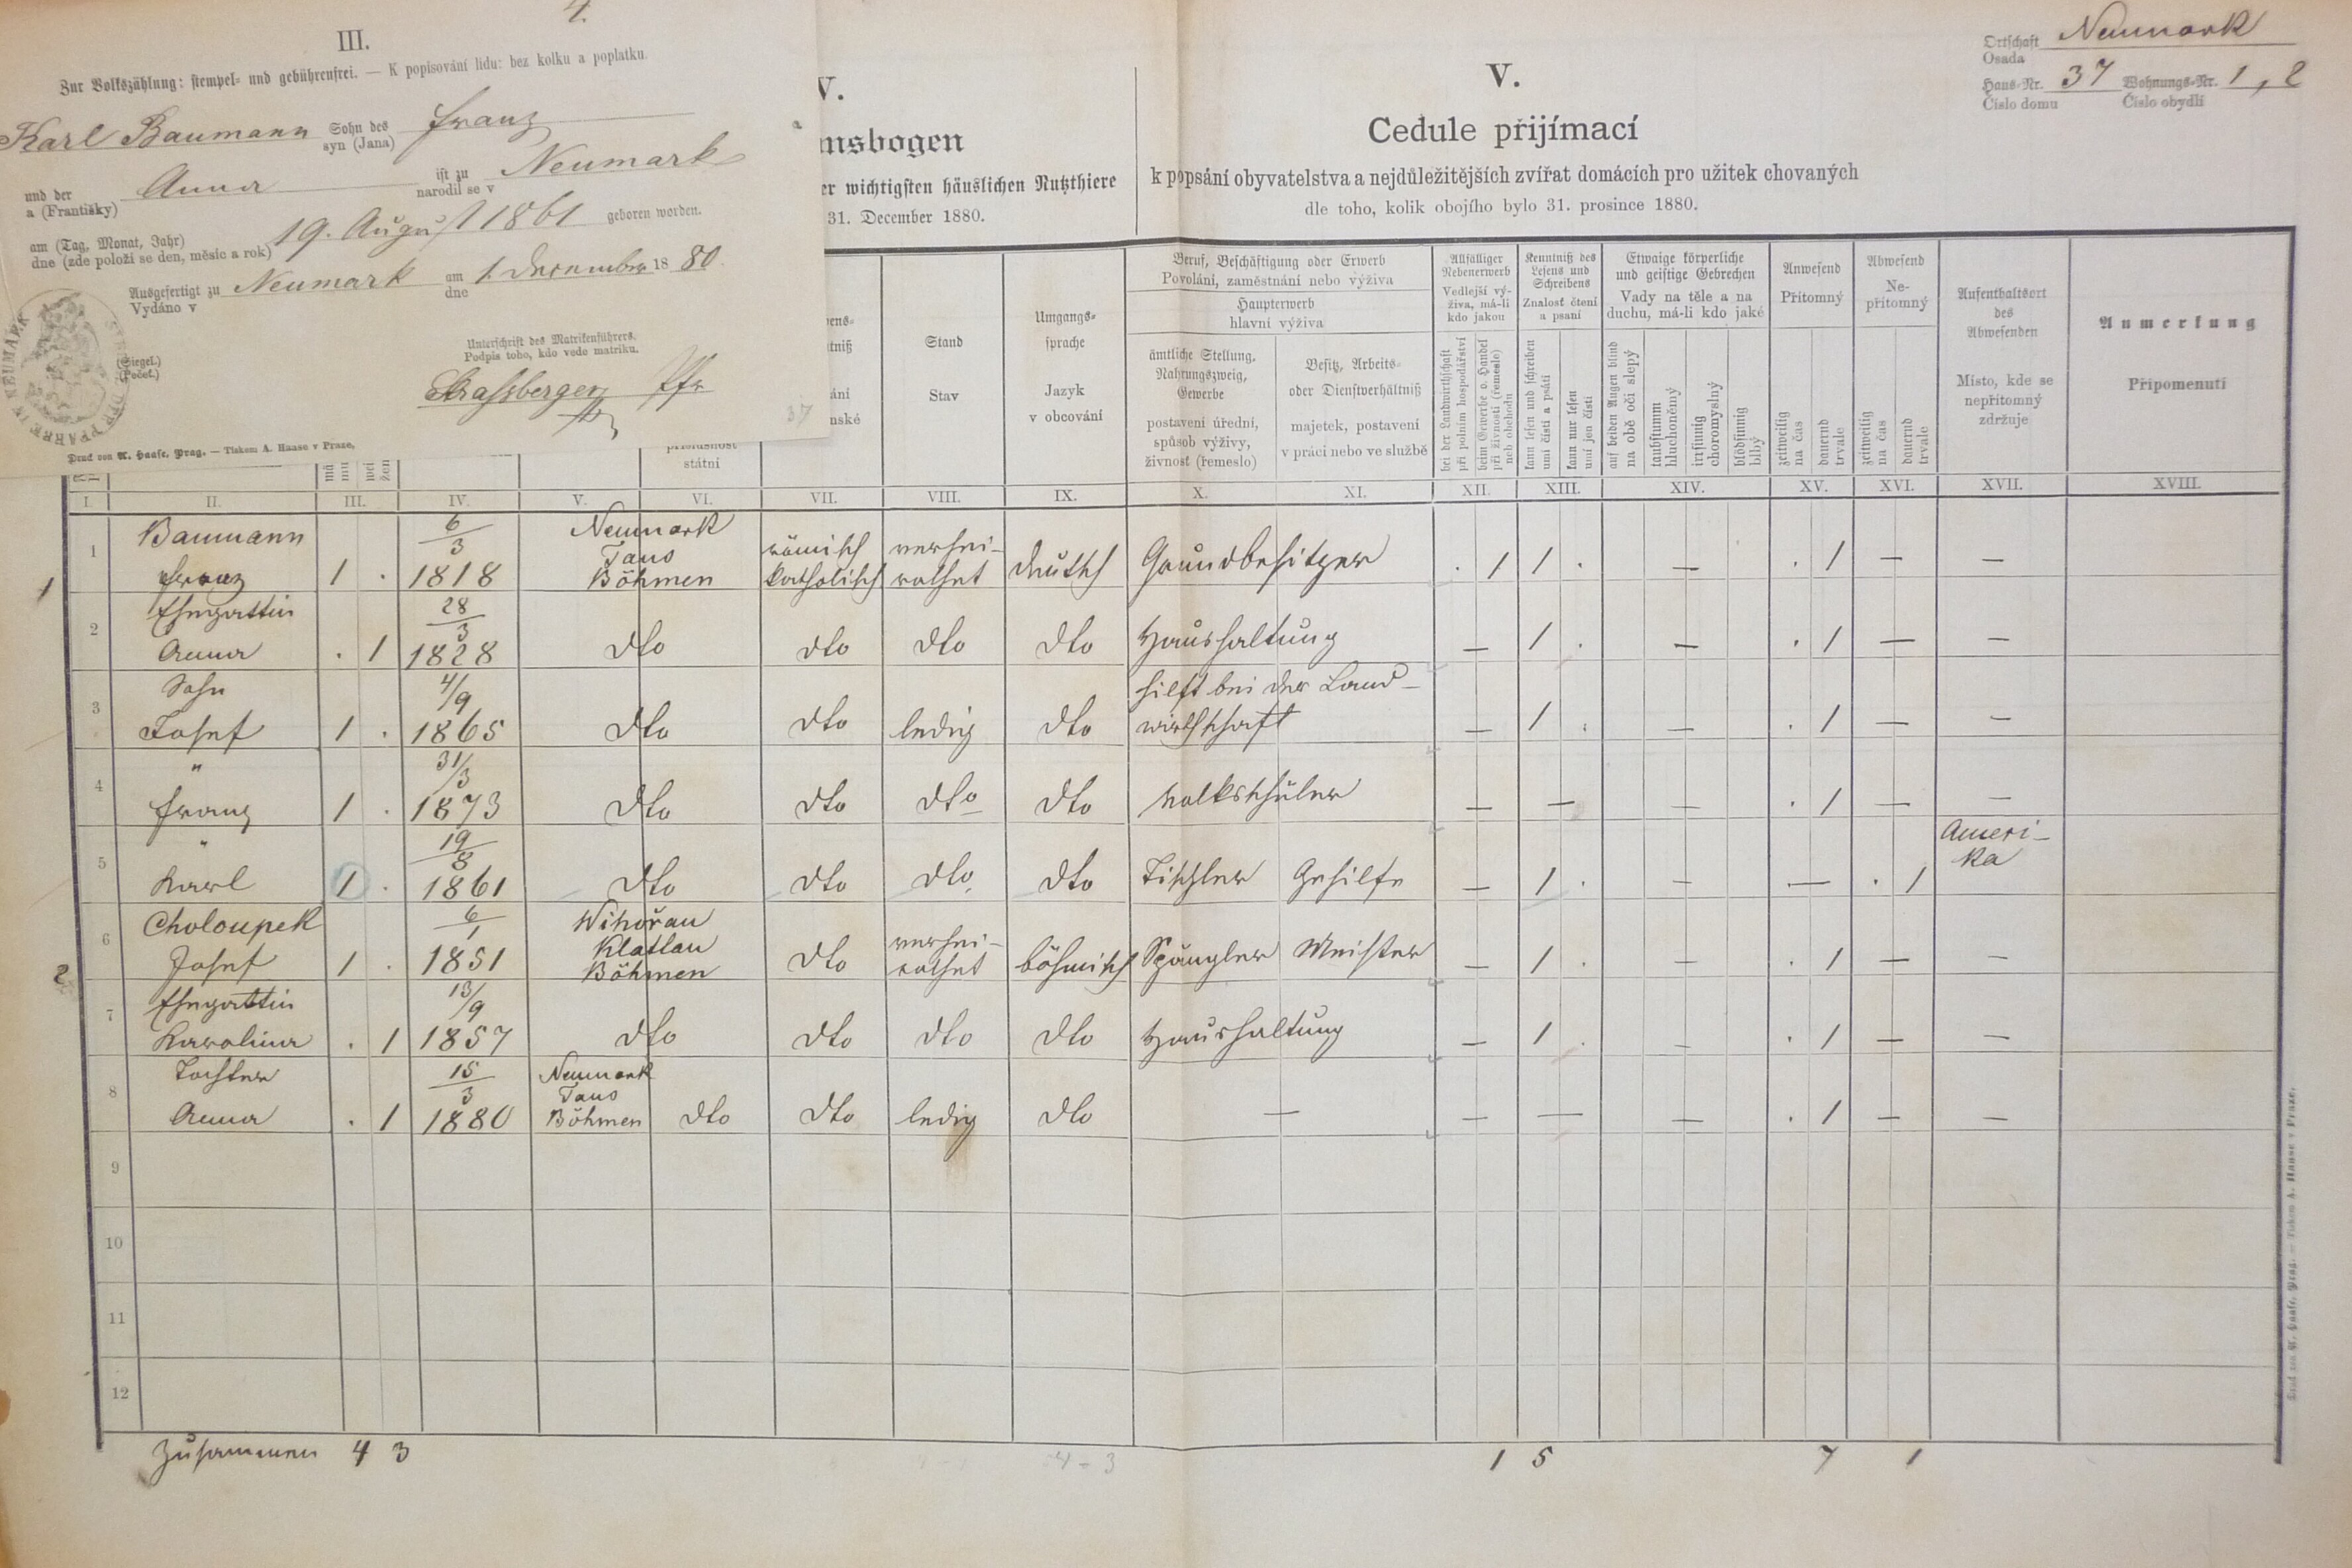 4.
III.
Zur Volkszählung: stempel- und gebührenfrei. — K popisování lidu: bez kolku a poplatku.
Karl Baumann Sohn des Franz
syn (Jana)
und der Anna ist zu Neumark
a (Františky) narodil se v
am (Tag, Monat, Jahr) 19. August 1861 geboren worden.
dne (zde položí se den, měsíc a rok)
Ausgefertigt zu Neumark am 1. Dezember 1880.
Vydáno v dne
Unterschrift des Matrikenführers.
Podpis toho, kdo vede matriku.
(Siegel.)
(Pečeť.)
Strassberger Pfr
37
Druck von A. Haase, Prag. — Tiskem A. Haase v Praze.
V.
nsbogen
er wichtigsten häuslichen Nutzthiere
31. December 1880.
V.
Cedule přijímací
k popsání obyvatelstva a nejdůležitějších zvířat domácích pro užitek chovaných
dle toho, kolik obojího bylo 31. prosince 1880.
Ortschaft Neumark
Osada
Haus-Nr. 37 Wohnungs-Nr. 1, 2
Číslo domu Číslo obydlí
příslušnost
státní
Stand
Stav
Umgangs-
sprache
Jazyk
v obcování
Beruf, Beschäftigung oder Erwerb
Povolání, zaměstnání nebo výživa
Haupterwerb
hlavní výživa
ämtliche Stellung,
Nahrungszweig,
Gewerbe
postavení úřední,
spůsob výživy,
živnost (řemeslo)
Besitz, Arbeits-
oder Dienstverhältniß
majetek, postavení
v práci nebo ve službě
Allfälliger
Nebenerwerb
Vedlejší vý-
živa, má-li
kdo jakou
bei der Landwirthschaft
při polním hospodářství
beim Gewerbe o. Handel
při živnosti (řemesle)
neb obchodu
Kenntniß des
Lesens und
Schreibens
Znalosť čtení
a psaní
kann lesen und schreiben
umí čísti a psáti
kann nur lesen
umí jen čísti
Etwaige körperliche
und geistige Gebrechen
Vady na těle a na
duchu, má-li kdo jaké
auf beiden Augen blind
na obě oči slepý
taubstumm
hluchoněmý
irrsinnig
choromyslný
blödsinnig
blbý
Anwesend
Přítomný
zeitweilig
na čas
dauernd
trvale
Abwesend
Ne-
přítomný
zeitweilig
na čas
dauernd
trvale
Aufenthaltsort
des
Abwesenden
Místo, kde se
nepřítomný
zdržuje
Anmerkung
Připomenutí
I. II. III. IV. V. VI. VII. VIII. IX. X. XI. XII. XIII. XIV. XV. XVI. XVII. XVIII.
Baumann 6/3 Neumark
Taus römisch verhei-
1 1 Franz 1 . 1818 Böhmen katholisch rathet deutsch Grundbesitzer . 1 1 . — . 1 — —
Ehegattin 28/3
2 Anna . 1 1828 dto dto dto dto Haushaltung — 1 . — . 1 — —
Sohn 4/9 hilft bei der Land-
3 Josef 1 . 1865 dto dto ledig dto wirthschaft — 1 . — . 1 — —
" 31/3
4 Franz 1 . 1873 dto dto dto dto Volksschüler — — — . 1 — —
" 19/8 Ameri-
ka
5 Karl 1 . 1861 dto dto dto dto Tischler Gehilfe — 1 . — .— . 1
Choloupek 6/1 Wihořau
Klattau verhei-
2 6 Josef 1 . 1851 Böhmen dto rathet böhmisch Spängler Meister — 1 . — . 1 — —
Ehegattin 13/9
7 Karolina . 1 1857 dto dto dto dto Haushaltung — 1 . — . 1 — —
Tochter 15/3 Neumark
Taus
8 Anna . 1 1880 Böhmen dto dto ledig dto — — — — . 1 — —
9
10
11
12
Zusammen 4 3 4 - 3 1 5 7 1
Druck von A. Haase, Prag. — Tiskem A. Haase v Praze.